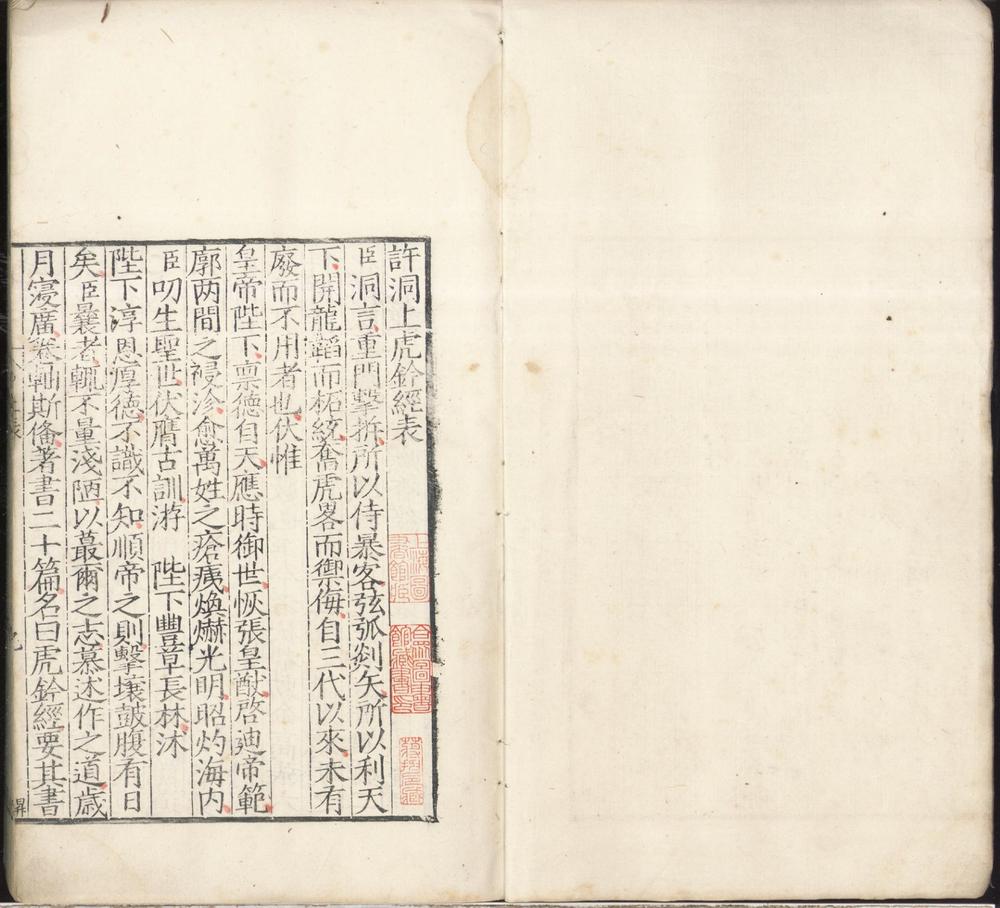 許洞上虎鈐經表
臣洞言重門擊柝所以待暴客弦弧剡矢所以利天
下開龍韜而柘絃奮虎畧而禦侮自三代以來未有
廢而不用者也伏惟
皇帝陛下禀德自天應時御世恢張皇猷啓迪帝範
廓两間之祲沴愈萬姓之瘡痍煥爀光明昭灼海内
臣叨生聖世伏膺古訓游 陛下豐草長林沐
陛下淳恩厚德不識不知順帝之則擊壤鼓腹有日
矣臣曩者輒不量淺陋以蕞爾之志慕述作之道歲
月寖廣卷軸斯俻著書二十篇名曰虎鈐經要其書